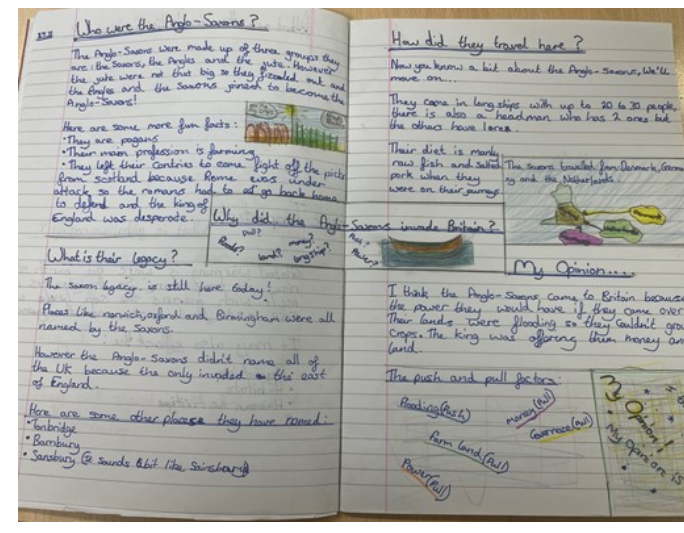 Who were the Anglo-Saxons?
The Anglo-Saxons were made up of three groups they
are: the Saxons, the Angles and the Jute. However
the jute were not that big so they fizzeled out and
the Angles and the Saxons joined to become the
Anglo-Saxons!
Here are some more fun facts:
• They are pagans
• Their main profession is farming
• They left their contries to come fight off the picts
from scotland because Rome was under
attack so the romans had to go back home
to defend and the king of
England was desperate.
What is their legacy?
The saxon legacy is still here today!
Places like norwich, oxford and Birmingham were all
named by the Saxons.
However the Anglo-Saxons didn't name all of
the UK because the only invaded the east
of England.
Here are some other places they have named:
• Tonbridge
• Bambury
• Sansbury (It sounds abit like Sainsburys)
Why did the Anglo-Saxons invade Britain?
pull?
Push?
Roads?
money?
Power?
land?
longship?
How did they travel here?
Now you know a bit about the Anglo-Saxons, We'll
move on...
They came in longships with up to 20 to 30 people,
there is also a headman who has 2 ores but
the others have 1 ore.
Their diet is manly
raw fish and salted
pork when they
were on their journeys.
The saxons travelled from: Denmark, German
ny and the Netherlands.
My Opinion...
I think the Anglo-Saxons came to Britain because
the power they would have if they came over
Their lands were flooding so they couldn't grow
crops. The king was offering them money an
land.
The push and pull factors:
Flooding (Push)
money (Pull)
farm land (Pull)
Power (Pull)
My Opinion!
My Opinions is